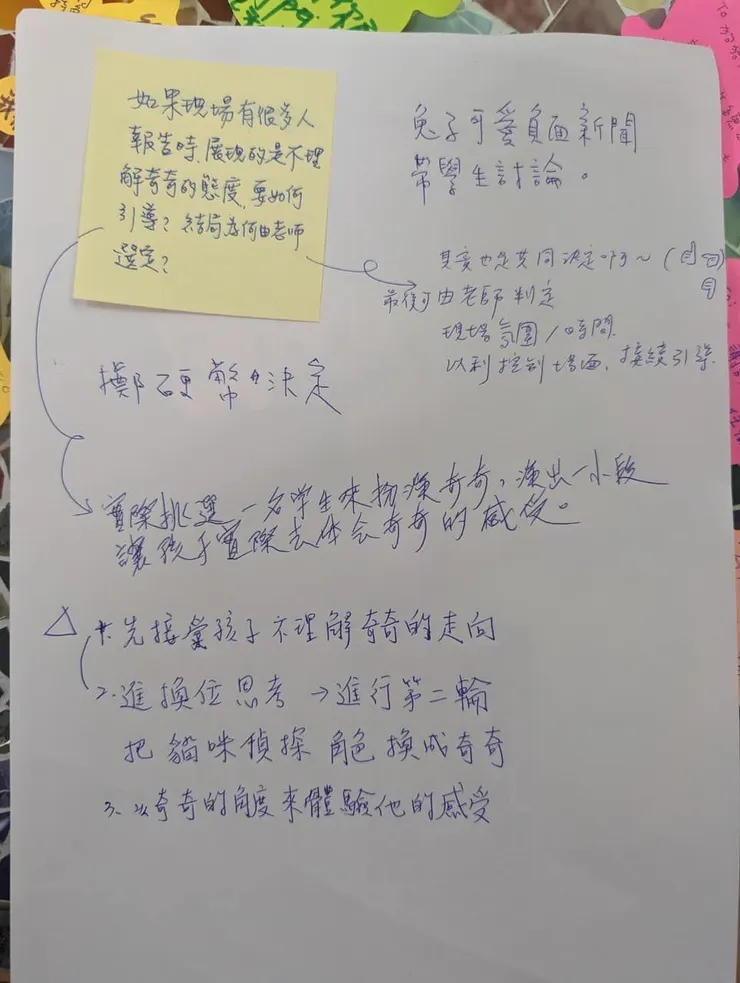 如果現場有很多人
報告時,展現的是不理
解奇奇的態度,要如何
引導?結局為何由老師
選定?
兔子可愛負面新聞
帶學生討論。
其實也是共同決定啊~(
最後可由老師判定
現場氛圍/時間
以利控制場面,接續引導
擲硬幣決定
實際挑選一名學生來扮演奇奇,演出一小段
讓孩子實際去体会奇奇的感受。
△ 1.先接彙孩子不理解奇奇的走向
2.進換位思考→進行第二輪
把貓咪偵探角色換成奇奇
3.以奇奇的角度來體驗他的感受